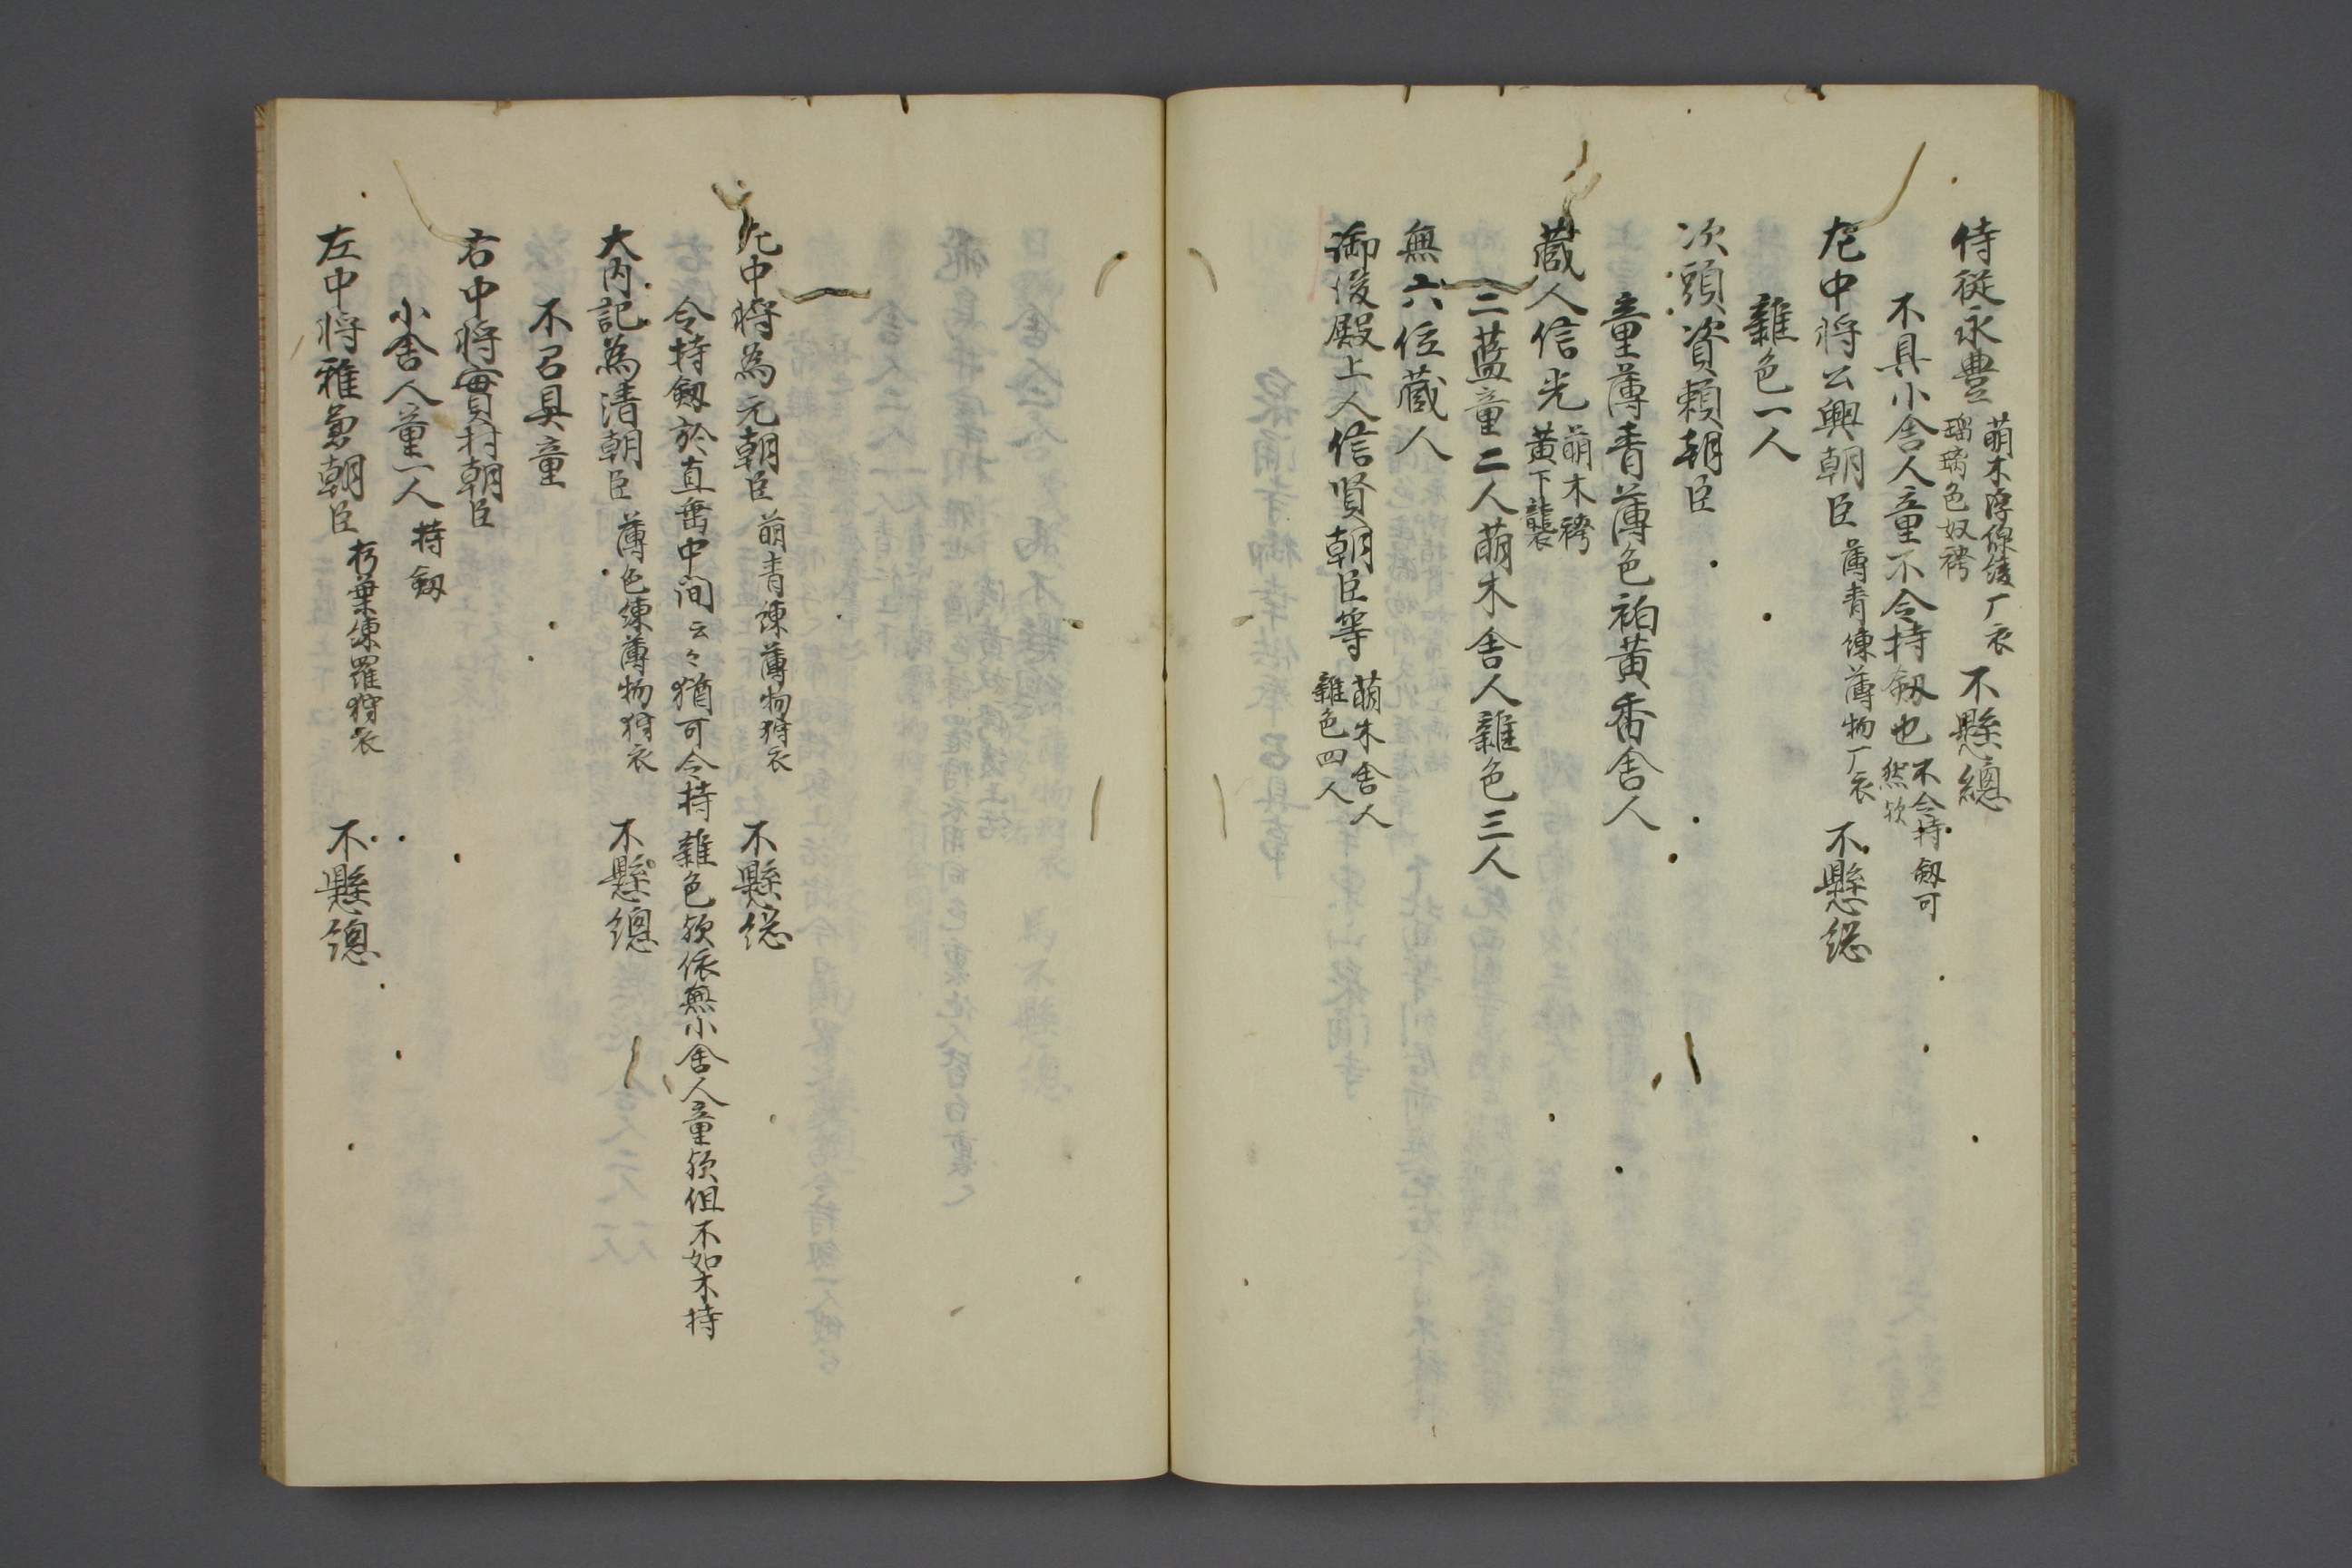 侍従永豊 萌木浮線綾厂衣 瑠璃色奴袴 不懸總
不具小舎人童不令持釼也 不令持釼可然欤
左中将公興朝臣 薄青練薄物厂衣 不懸総
雑色一人
次頭資頼朝臣
童薄青薄色袙黄香舎人
蔵人信光 萌木袴 黄下襲
二藍童二人萌木舎人雑色三人
無六位蔵人
御後殿上人信賢朝臣等 萌木舎人 雑色四人
左中将為元朝臣 萌青練薄物狩衣 不懸総
令持釼於直垂中间云々猶可令持雑色欤依無小舎人童欤但不如不持
大内記為清朝臣 薄色練薄物狩衣 不懸總
不召具童
右中将實村朝臣
小舎人童一人 持釼
左中将雅 朝臣 朽葉練羅狩衣 不懸總